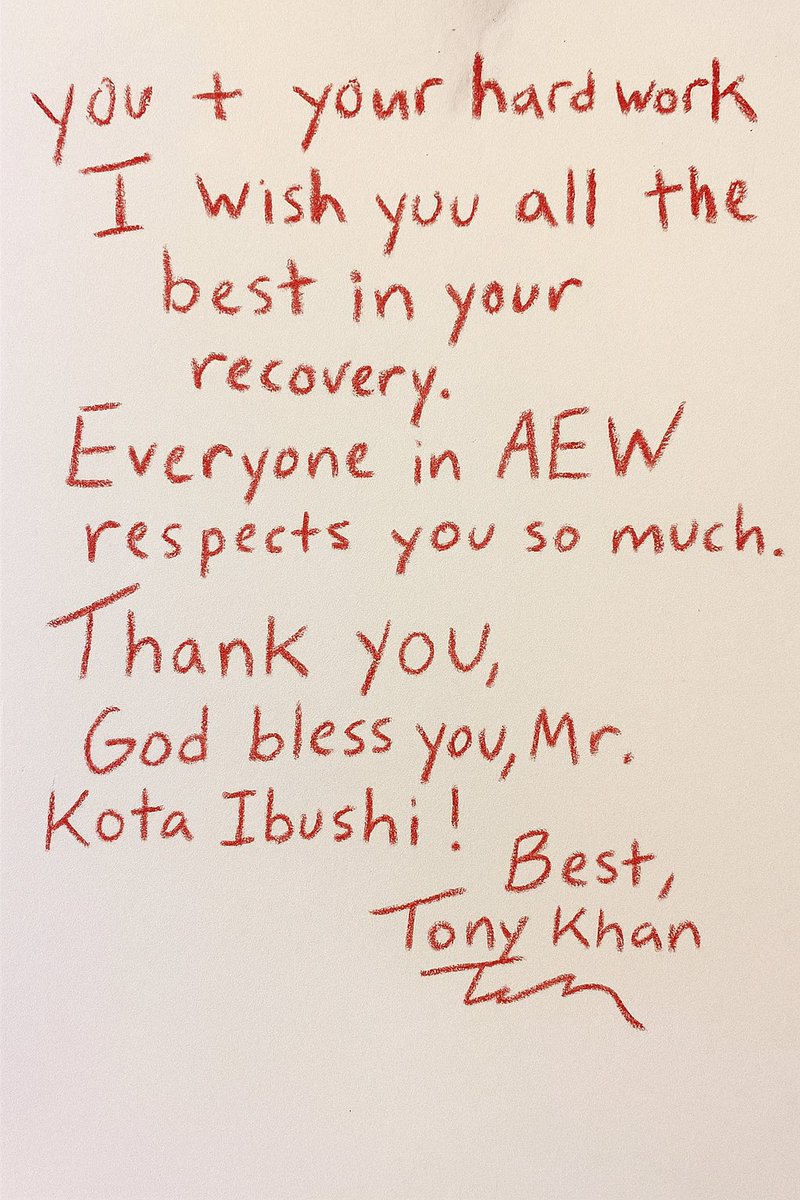 you + your hard work
I wish you all the
best in your
recovery.
Everyone in AEW
respects you so much.
Thank you,
God bless you, Mr.
Kota Ibushi!
Best,
Tony Khan